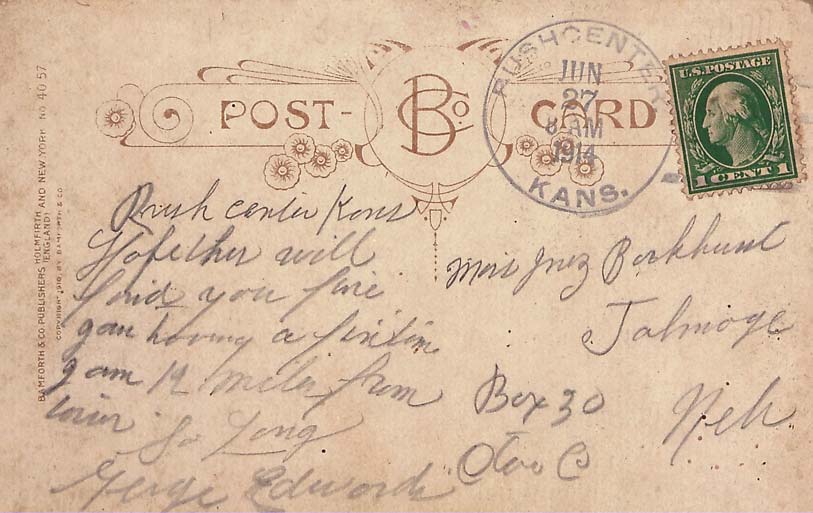 POST- BCo. CARD
RUSH CENTER
JUN
27
8 AM
1914
KANS.
U.S. POSTAGE
1 CENT 1
BAMFORTH & CO. PUBLISHERS HOLMFIRTH AND NEW YORK No 4057
(ENGLAND)
COPYRIGHT 1910, BY BAMFORTH & CO
Rush center Kans
Hope ther will
find you fine
gam having a fin tim
I am 12 miles from
town So Long
George Edwards
Miss Inez Barkhurst
Talmage
Box 30 Neb
Otoe Co